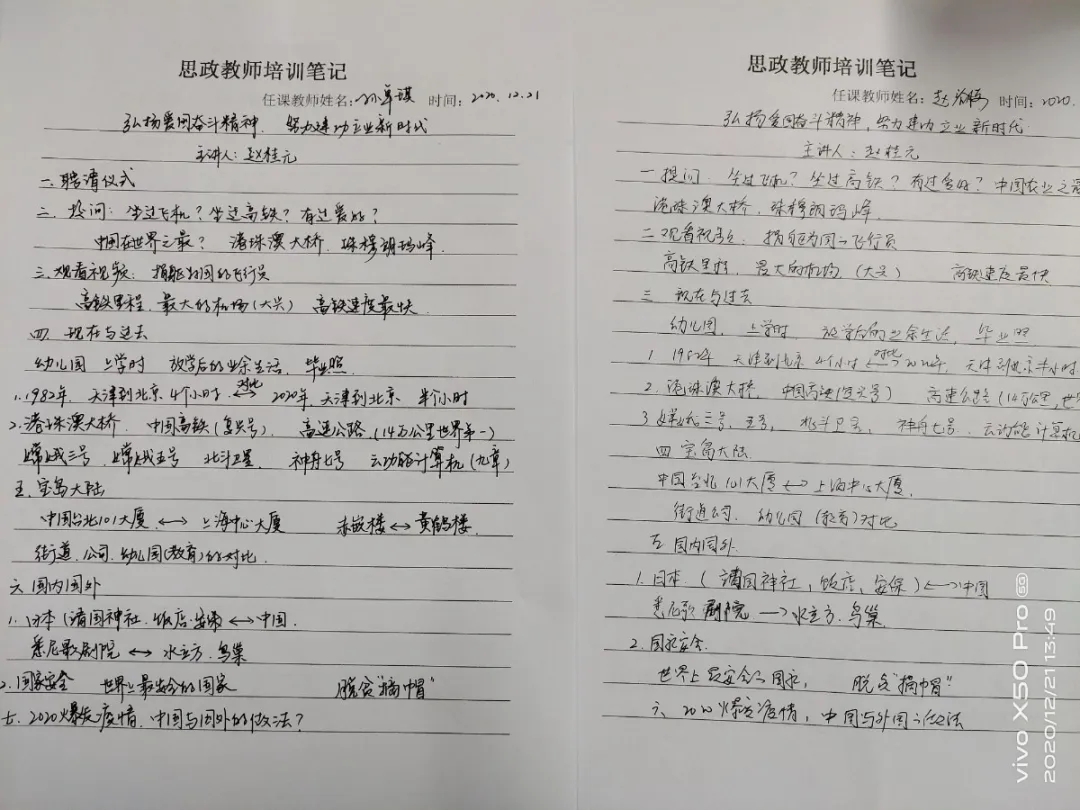 思政教师培训笔记
任课教师姓名: 时间: 2020.12.21
弘扬爱国奋斗精神、努力建功立业新时代
主讲人:赵桂元
一.聘请仪式
二.提问:坐过飞机?坐过高铁?有过爱好?
中国在世界之最?港珠澳大桥、珠穆朗玛峰.
三.观看视频:捐躯为国的飞行员
高铁里程、最大的机场(大兴) 高铁速度最快.
四.现在与过去
幼儿园 上学时 放学后的业余生活、毕业照.
1.1982年,天津到北京4个小时 ←对比→ 2020年天津到北京 半个小时
2.港珠澳大桥、中国高铁(复兴号)、高速公路(14万公里世界第一)
嫦娥三号、嫦娥五号 北斗卫星、神舟七号 云功能计算机(九章)
五.宝岛大陆
中国台北101大厦 ←→ 上海中心大厦 赤嵌楼 ←→ 黄鹤楼.
街道、公司、幼儿园(教育)的对比.
六.国内国外
1.日本(靖国神社、饭店、安保 ←→ 中国.
悉尼歌剧院 ←→ 水立方、鸟巢
2.国家安全 世界上最安全的国家 脱贫"摘帽"
七.2020爆发疫情、中国与国外的做法?
思政教师培训笔记
任课教师姓名: 赵 时间: 2020.
弘扬爱国奋斗精神,努力建功立业新时代
主讲人:赵桂元
一提问:坐过飞机?坐过高铁?有过爱好?中国在业之最
港珠澳大桥,珠穆朗玛峰.
二观看视频:捐躯为国的飞行员
高铁里程,最大的机场(大兴) 高铁速度最快
三 现在与过去
幼儿园,上学时 放学后的业余生活,毕业照
1.1982年 天津到北京4个小时 ←对比→ 2020年 天津到北京半小时
2.港珠澳大桥,中国高铁(复兴号) 高速公路(14万公里,世
3 嫦娥三号,五号,北斗卫星,神舟七号.云功能计算机
四 宝岛大陆
中国台北101大厦 ←→ 上海中心大厦.
街道公司.幼儿园(教育)对比
五 国内国外
1.日本(靖国神社,饭店,安保) ←→ 中国
悉尼歌剧院 → 水立方.鸟巢
2.国家安全.
世界上最安全的国家, 脱贫"摘帽"
六、2020爆发疫情,中国与外国的做法
vivo X50 Pro 5G
2020/12/21 13:49